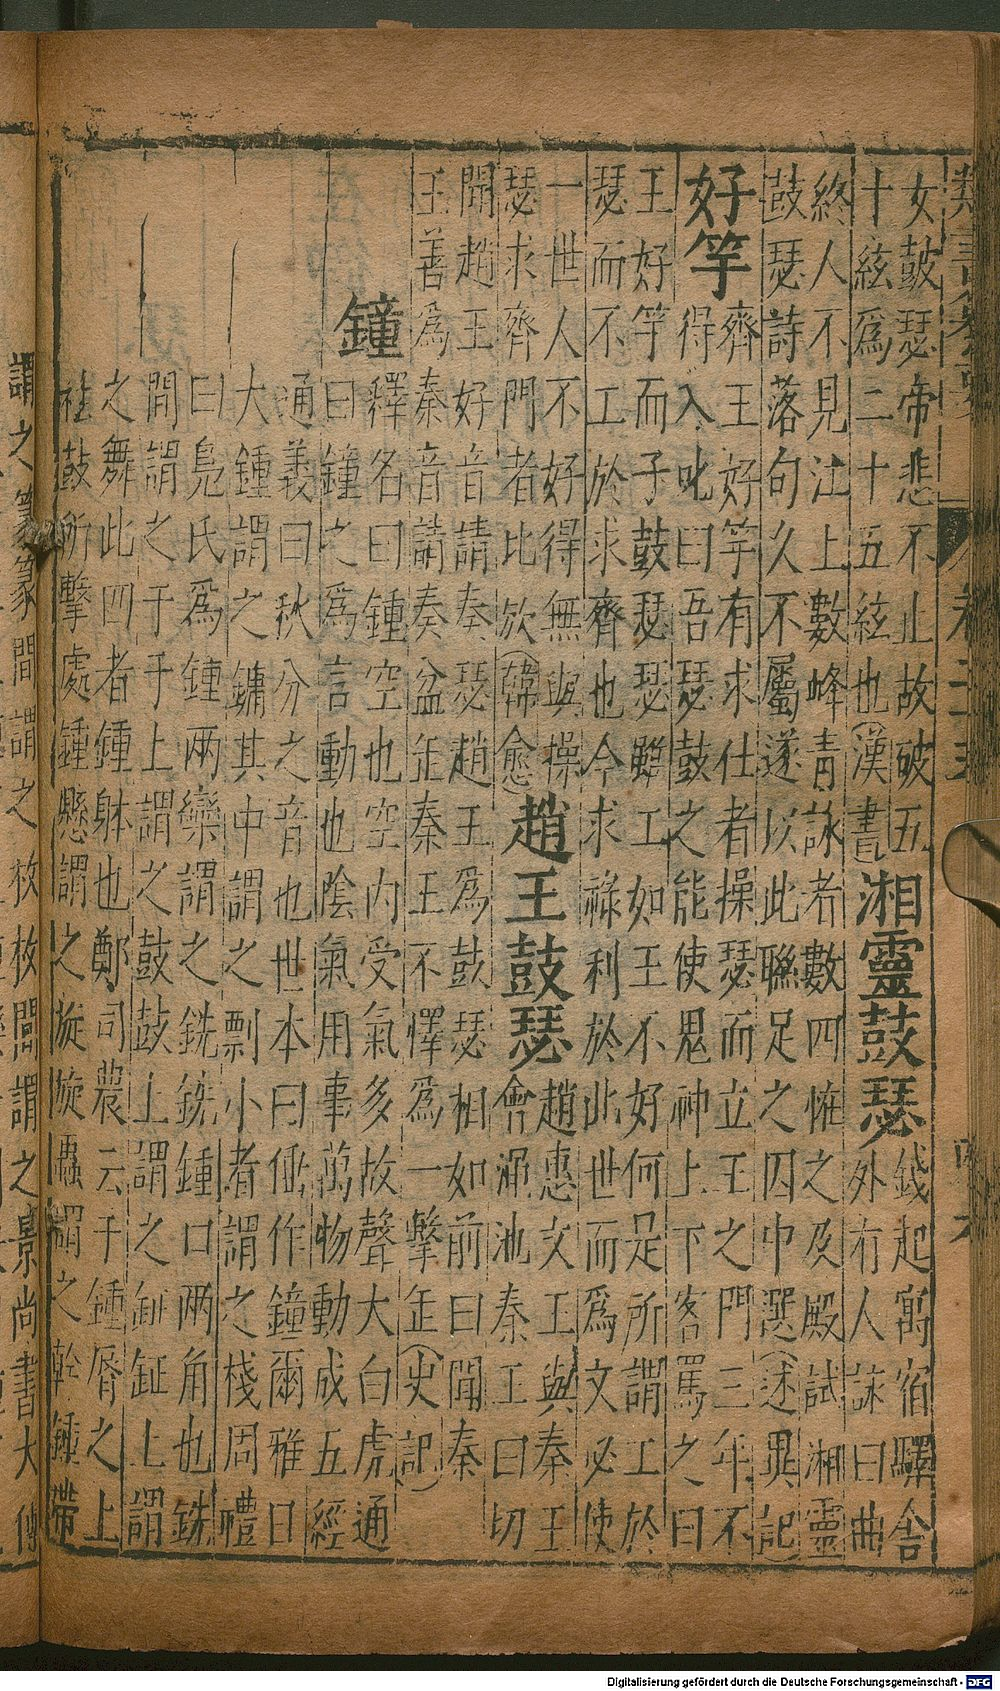 女鼓瑟帝悲不止故破五
十絃爲二十五絃也(漢書)
湘靈鼓瑟
錢起寓宿驛舍
外有人詠曰曲
終人不見江上數峰青詠者數四惟之及殿試湘靈
鼓瑟詩落句久不屬遂以此聯足之因中選(述異記)
好竽
齊王好竽有求仕者操瑟而立王之門三年不
得入叱曰吾瑟鼓之能使鬼神上下客罵之曰
王好竽而子鼓瑟瑟雖工如王不好何是所謂工於
瑟而不工於求齊也今求祿利於此世而爲文必使
一世人不好得無與操
瑟求齊門者比歟(韓愈)
趙王鼓瑟
趙惠文王與秦王
會澠池秦王曰切
聞趙王好音請奏瑟趙王爲鼓瑟相如前曰聞秦
王善爲秦音請奏盆缶秦王不懌爲一擊缶(史記)
鐘
釋名曰鍾空也空内受氣多故聲大白虎通
曰鐘之爲言動也陰氣用事萬物動成五經
通義曰秋分之音也世本曰倕作鐘爾雅曰
大鍾謂之鏞其中謂之剽小者謂之棧周禮
曰鳧氏爲鍾兩欒謂之銑銑鍾口兩角也銑
間謂之于于上謂之鼓鼓上謂之鉦鉦上謂
之舞此四者鍾躰也鄭司農云于鍾脣之上
袪鼓所擊處鍾懸謂之旋旋蟲謂之幹鍾帶
謂之篆篆間謂之枚枚間謂之景尚書大傳
Digitalisierung gefördert durch die Deutsche Forschungsgemeinschaft - DFG